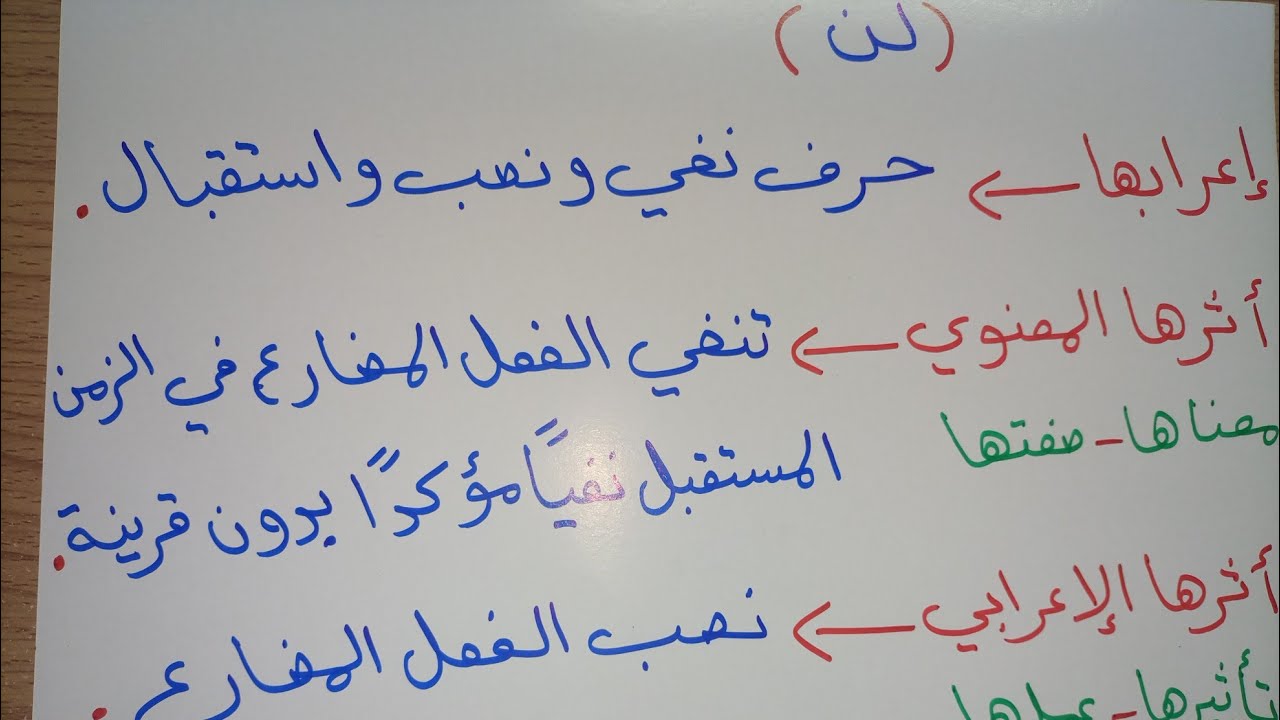 ( لن )
إعرابها ← حرف نفي ونصب واستقبال .
أثرها المعنوي ← تنفي الفعل المضارع في الزمن
معناها - صفتها
المستقبل نفيًا مؤكدًا بدون قرينة .
أثرها الإعرابي ← نصب الفعل المضارع .
تأثيرها - عملها